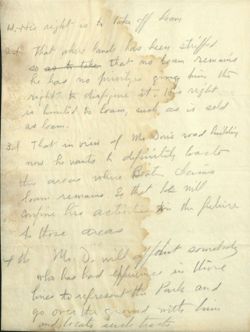 His right is to take off loam
2nd That where land has been stripped
so as to take that no loam remains
he has no priority giving him the
right to disfigure it. His right
is limited to loam, such as is sold
as loam.
3rd That in view of Mr. Dorr's road building
now he wants to definitely locate
the areas where Booth claims
loam remains. So that he will
confine his activities in the future
to those areas
4th Mr. D. will appoint somebody
who has had experience in these
lines to represent the Park and
go over the ground with him
and locate such tracts